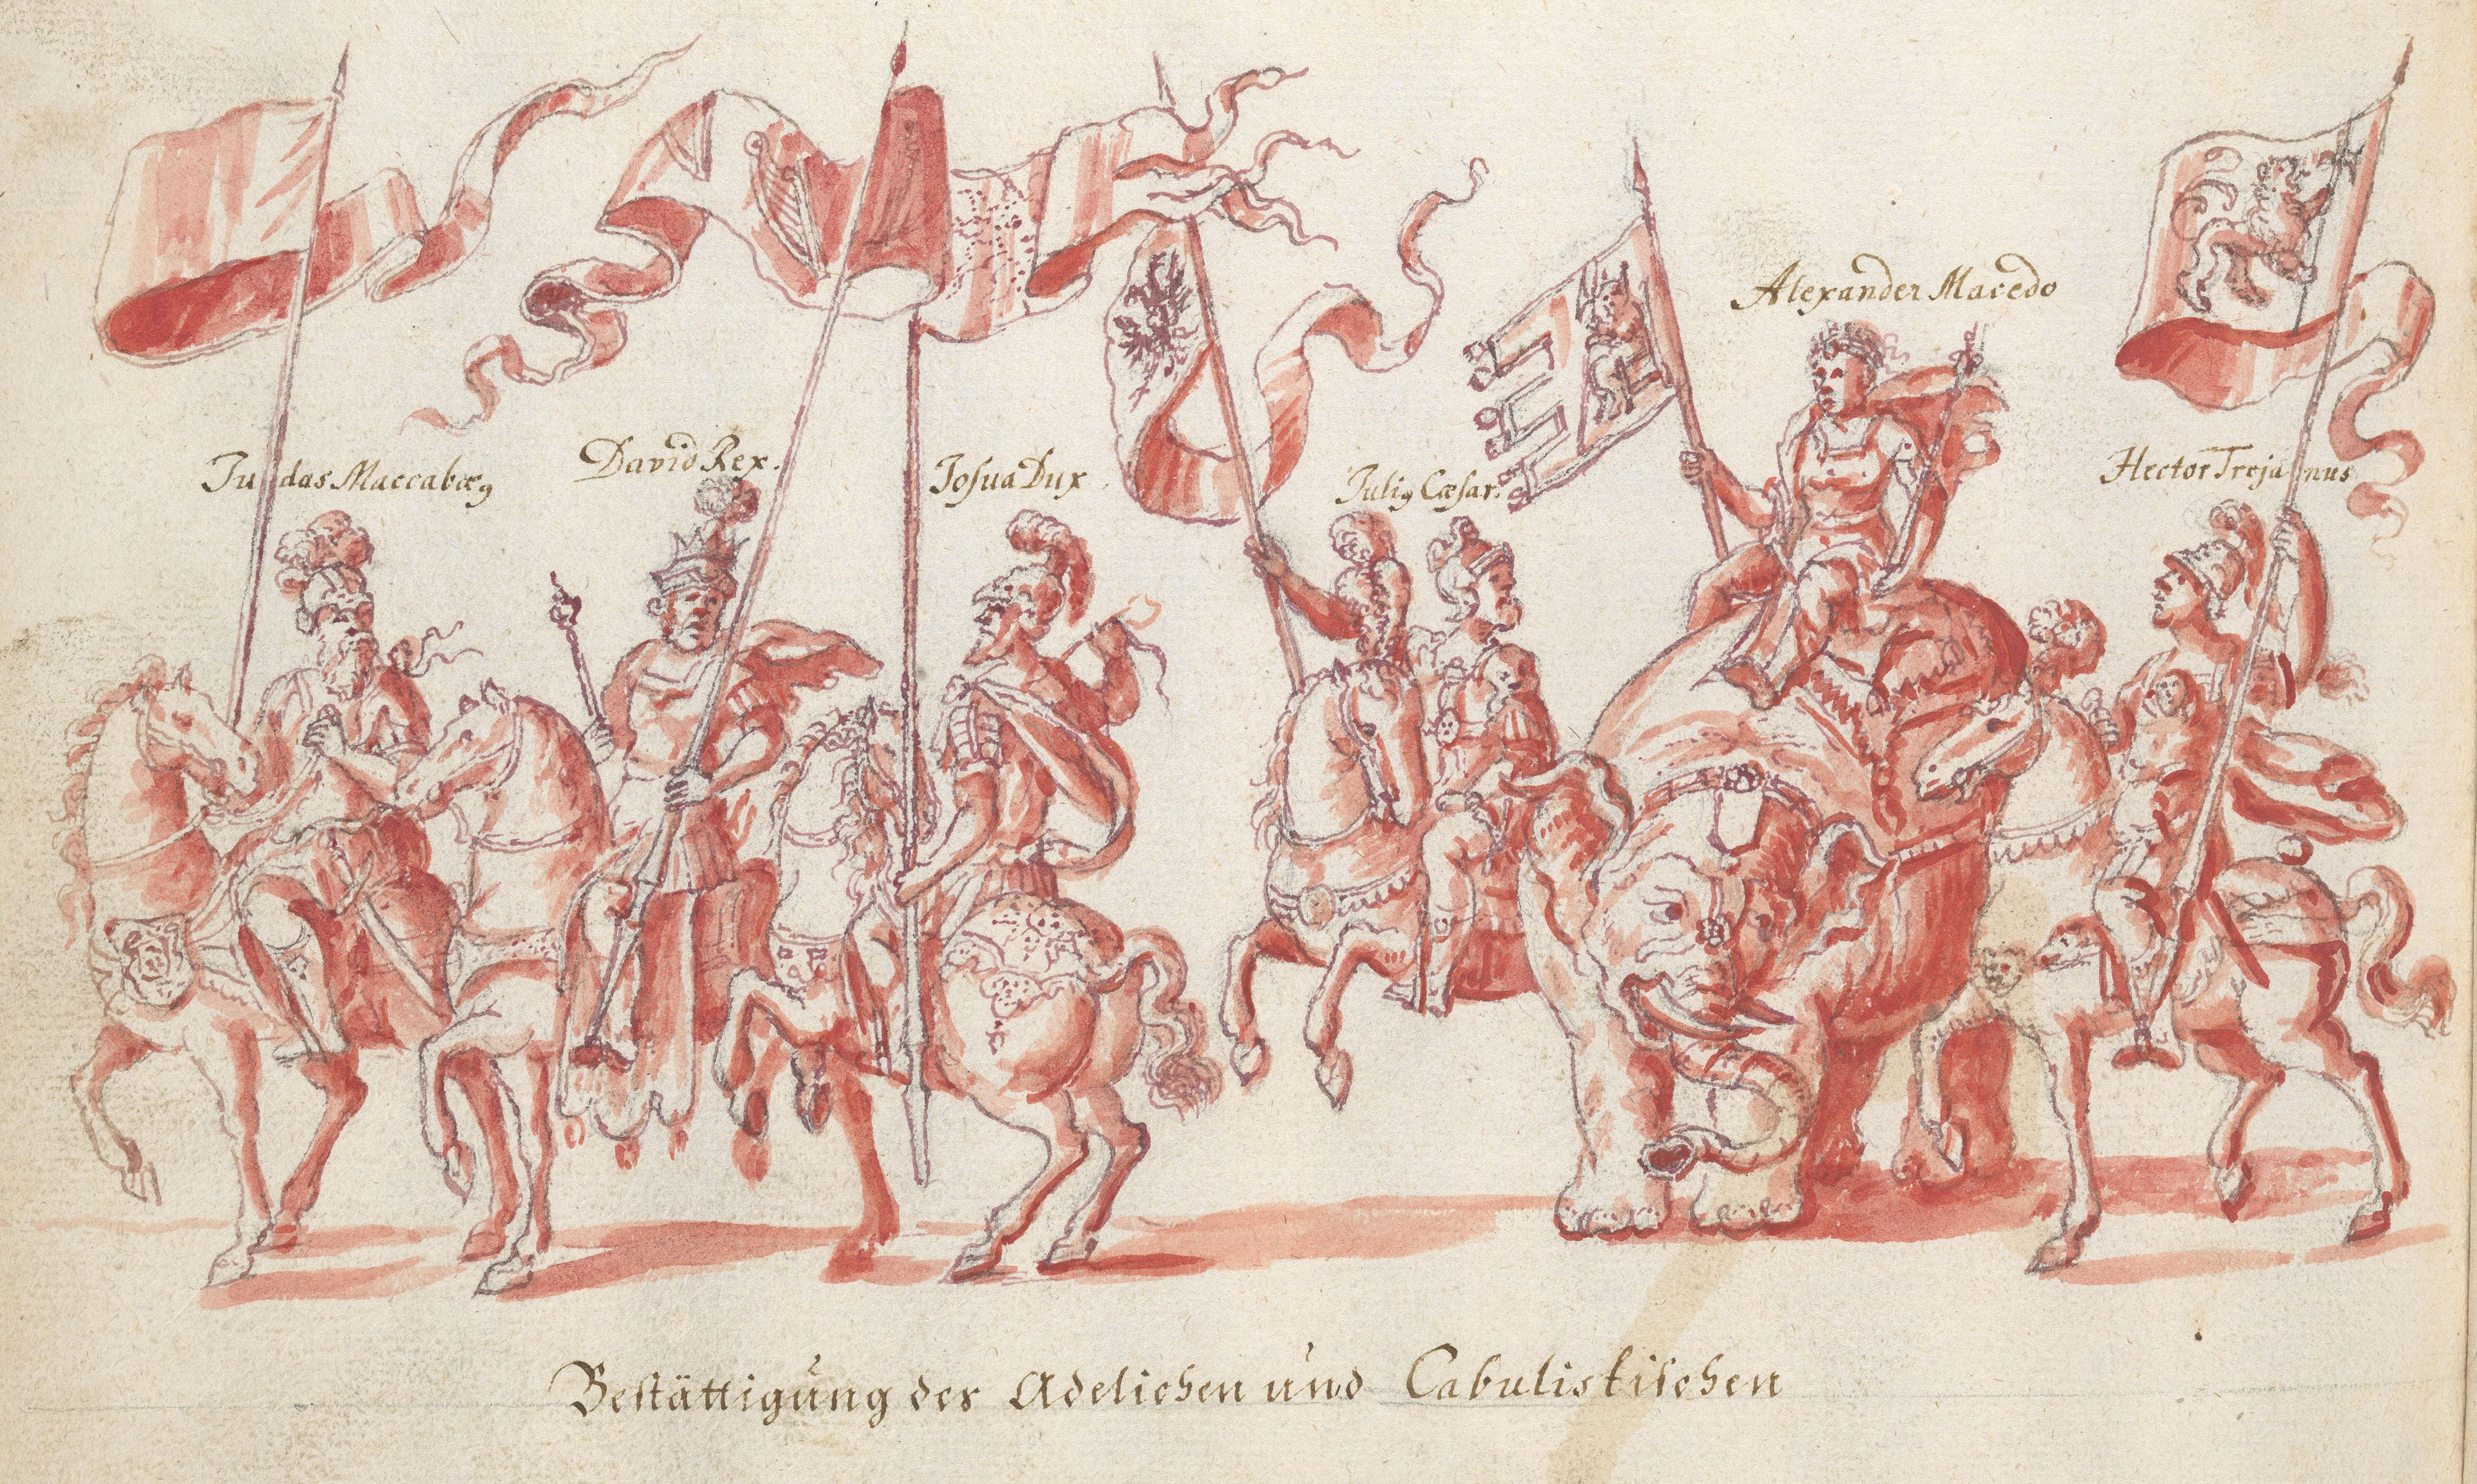 Alexander Macedo
Judas Maccabæꝰ
David Rex.
Iosua Dux
Juliꝰ Cæsar.
Hector Trojanus
Bestättigung der Adelichen und Cabulistischen